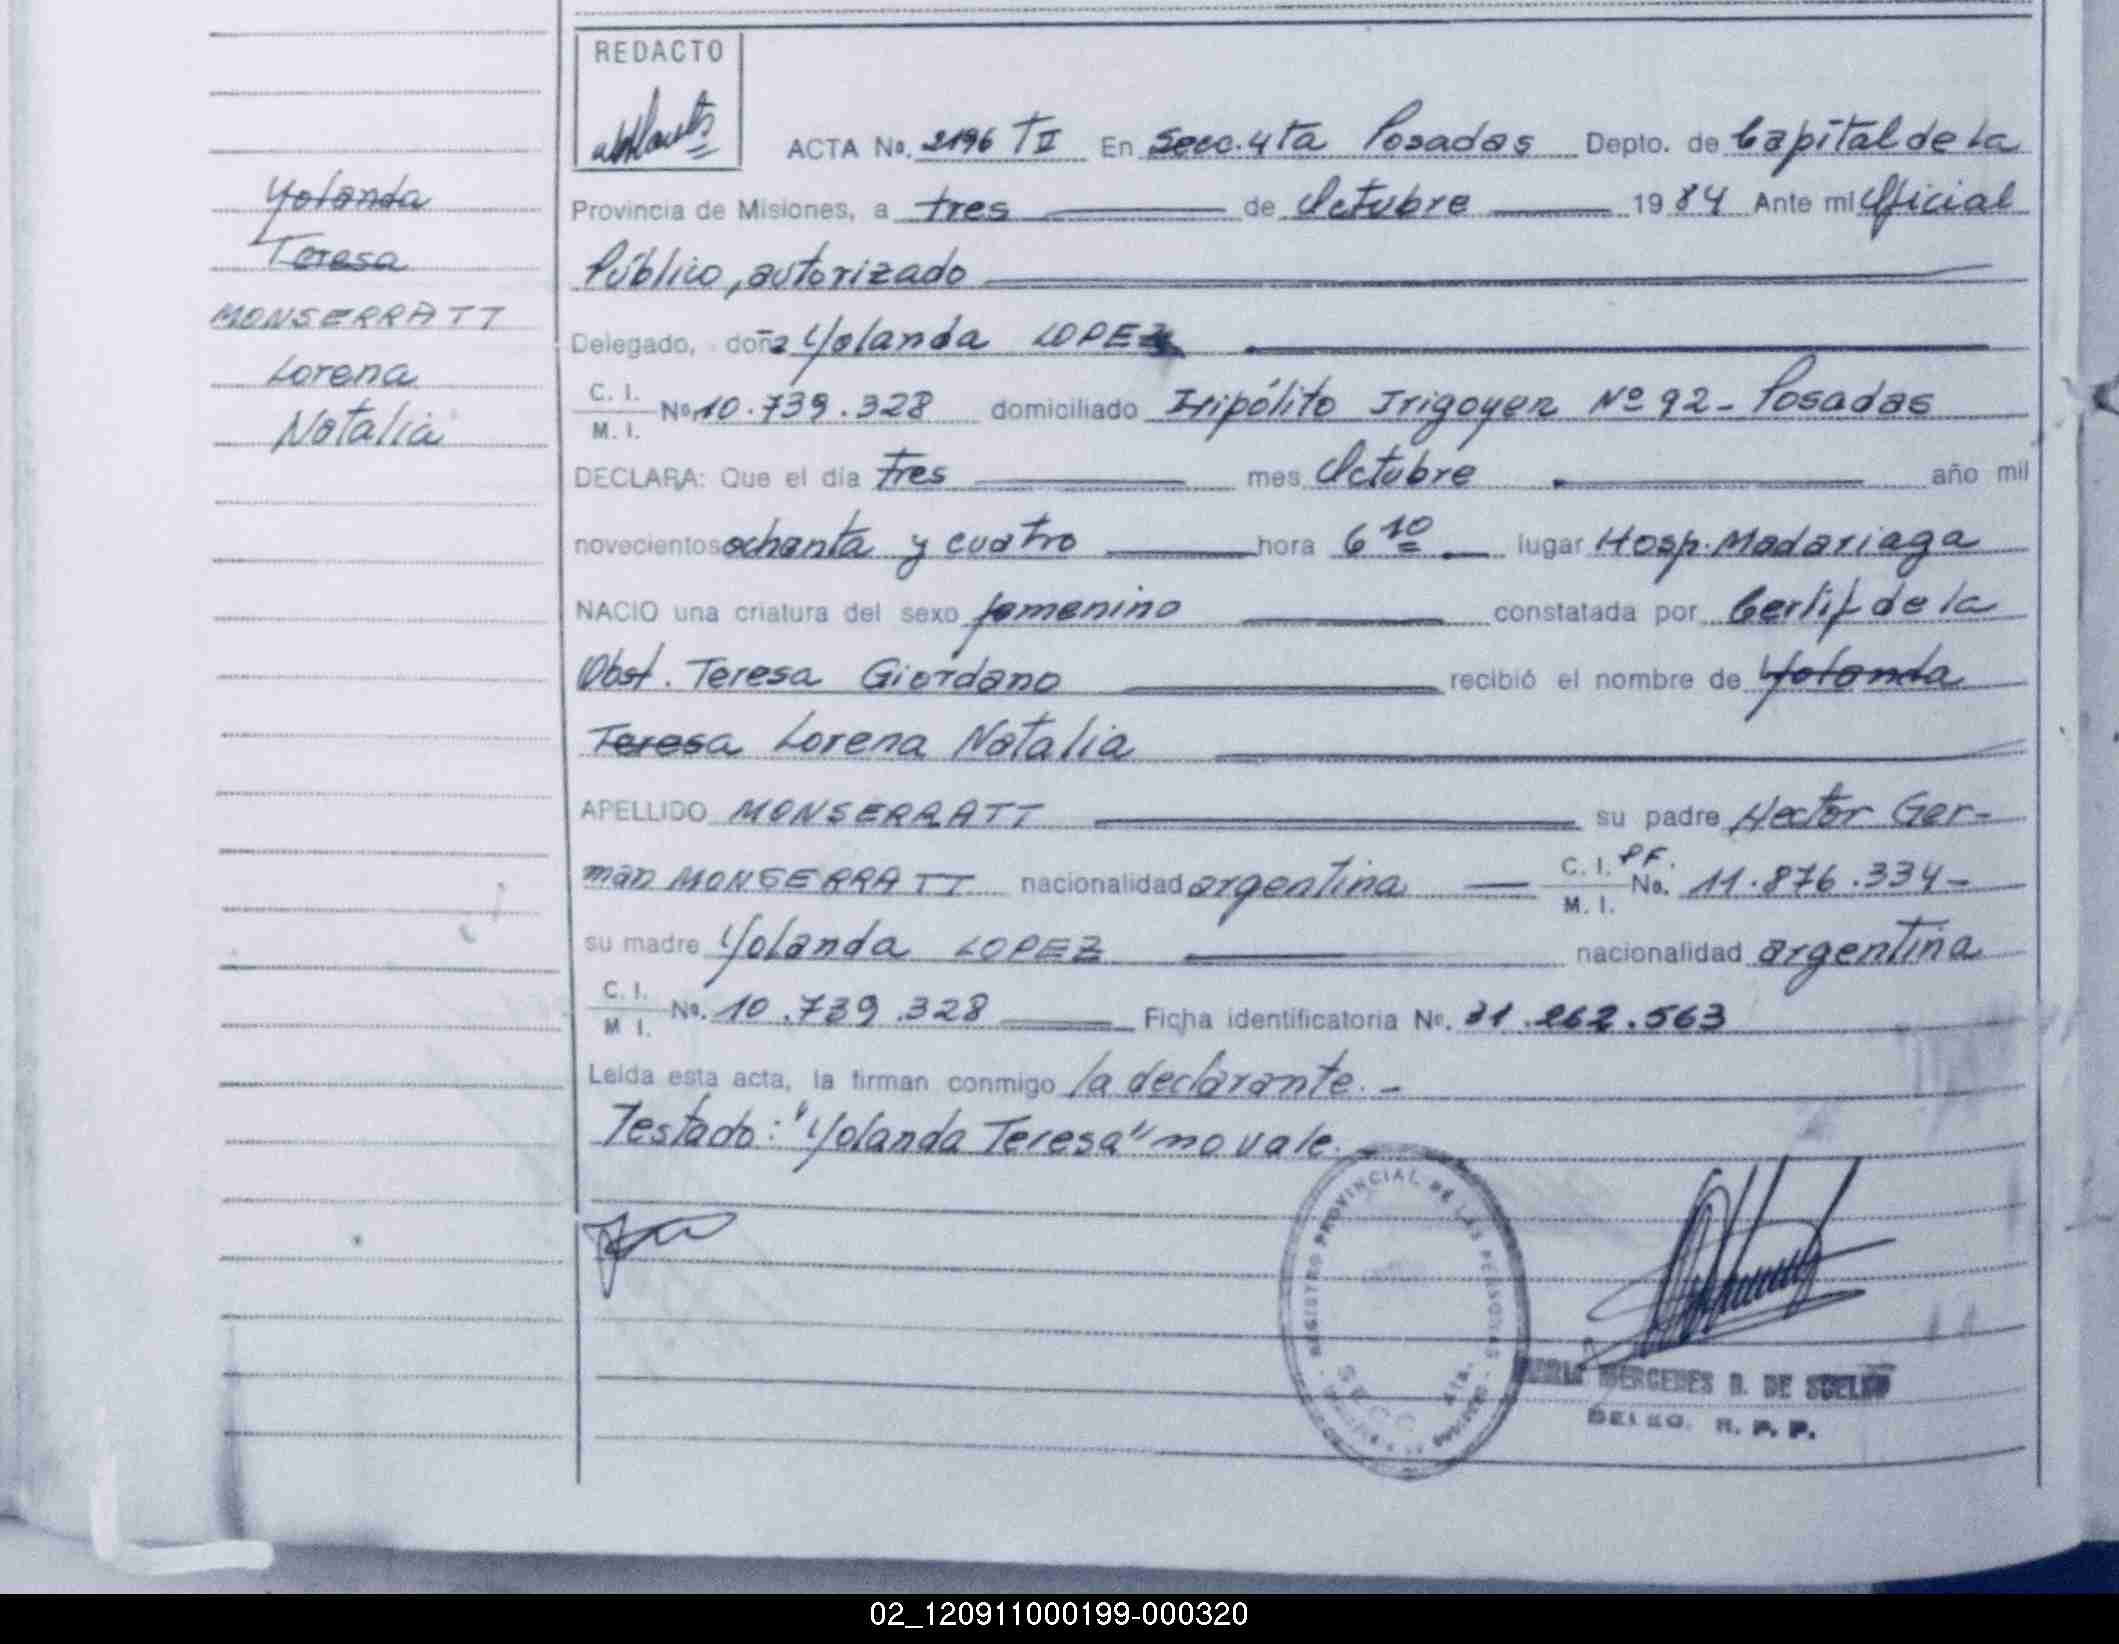 REDACTO
ACTA No. 2196 TII En Secc. 4ta Posadas Depto. de Capital de La
Provincia de Misiones, a tres de Octubre 1984 Ante mi Oficial
Público, autorizado
Delegado, doña Yolanda LOPEZ
C. I.
M. I.
No. 10.739.328 domiciliado Hipólito Irigoyen Nº 92 - Posadas
DECLARA: Que el día tres mes Octubre año mil
novecientos ochenta y cuatro hora 6 10 lugar Hosp. Madariaga
NACIO una criatura del sexo femenino constatada por Certif de la
Obst. Teresa Giordano recibió el nombre de Yolanda
Teresa Lorena Natalia
APELLIDO MONSERRATT su padre Hector Ger-
man MONSERRATT nacionalidad argentina C. I. P.F. M. I. No. 11.876.334-
su madre Yolanda LOPEZ nacionalidad argentina
C. I.
M I.
No. 10.739.328 Ficha identificatoria No. 31.262.563
Leída esta acta, la firman conmigo la declarante. -
Testado: "Yolanda Teresa" no vale. -
Yolanda
Teresa
MONSERRATT
Lorena
Natalia
REGISTRO PROVINCIAL DE LAS PERSONAS
SECC. 4ta.
MARIA MERCEDES B. DE
DELEG. R. P. P.
02_120911000199-000320